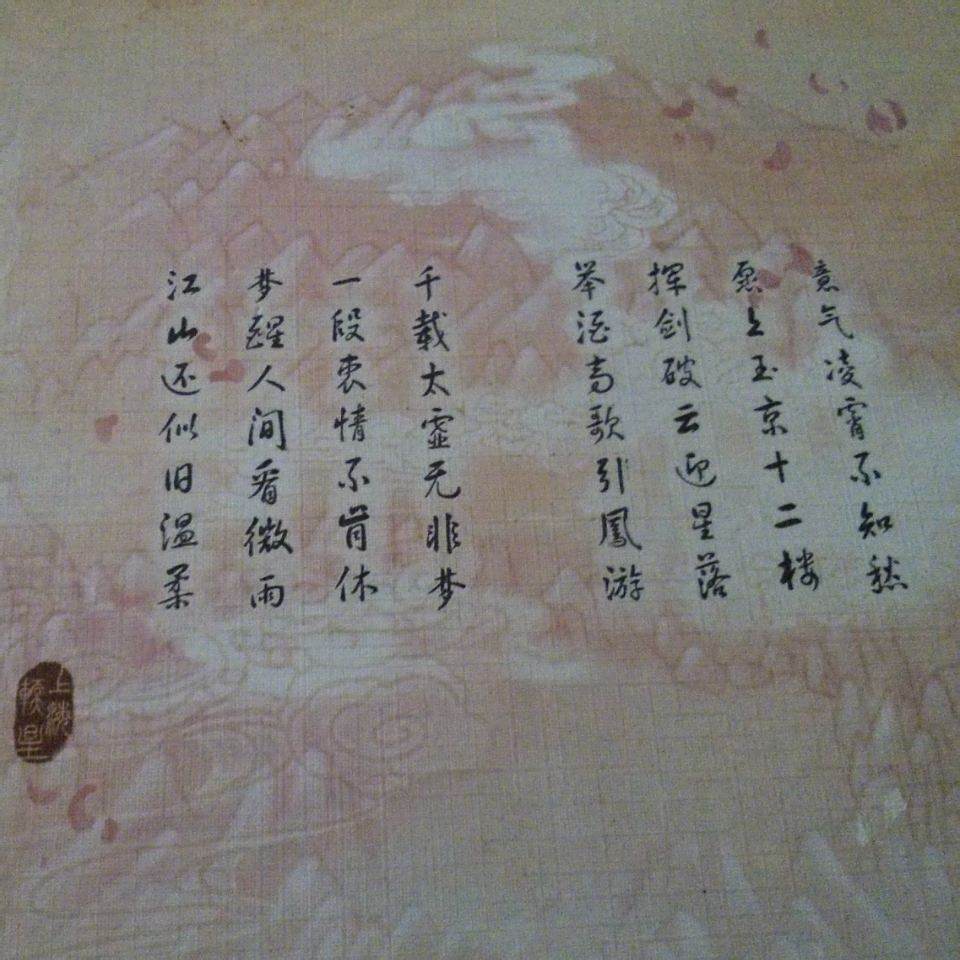 意气凌霄不知愁
愿上玉京十二楼
挥剑破云迎星落
举酒高歌引凤游
千载太虚无非梦
一段衷情不肯休
梦醒人间看微雨
江山还似旧温柔